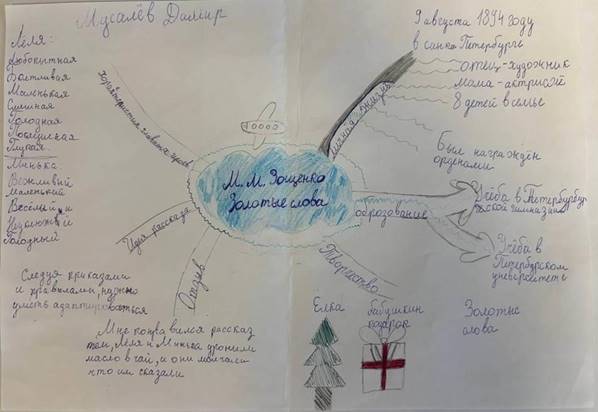 Мусалёв Дамир
Лёля:
Любопытная
Болтливая
Маленькая
Смешная
Голодная
Глупая.
Минька:
Вежливый
Маленький
Весёлый и
Голодный
Характеристика главных героев
Идея рассказа
Следуя приказами
и правилами, нужно
уметь адаптироваться
Отзыв
Мне понравился рассказ
тем, Лёля и Минька уронили
масло в чай, и они молчали
что им сказали
М. М. Зощенко
Золотые слова
Личная жизнь
9 августа 1894 году
в санкт Петербурге
отец-художник
мама-актрисой
8 детей в семье
Был награждён
орденами
оброзование
Учёба в Петербург
ской гимназии
Учёба в
Петербурском
университеть
Творчество
Елка
Бабушкин
подарок
Золотые
слова